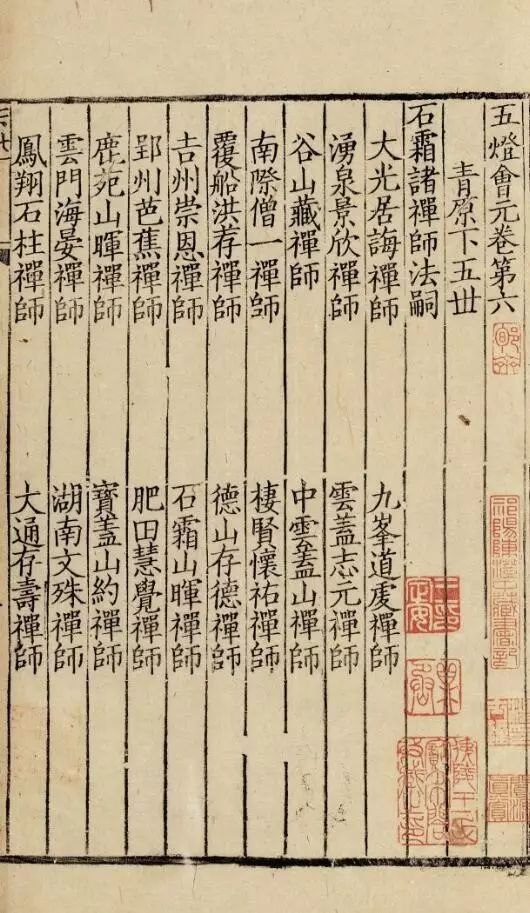 五燈會元卷第六
青原下五丗
石霜諸禪師法嗣
大光居誨禪師 九峯道虔禪師
湧泉景欣禪師 雲蓋志元禪師
谷山藏禪師 中雲蓋山禪師
南際僧一禪師 棲賢懷祐禪師
覆船洪荐禪師 德山存德禪師
吉州崇恩禪師 石霜山暉禪師
郢州芭蕉禪師 肥田慧覺禪師
鹿苑山暉禪師 寶蓋山約禪師
雲門海晏禪師 湖南文殊禪師
鳳翔石柱禪師 大通存壽禪師
祁陽陳澄中藏書記